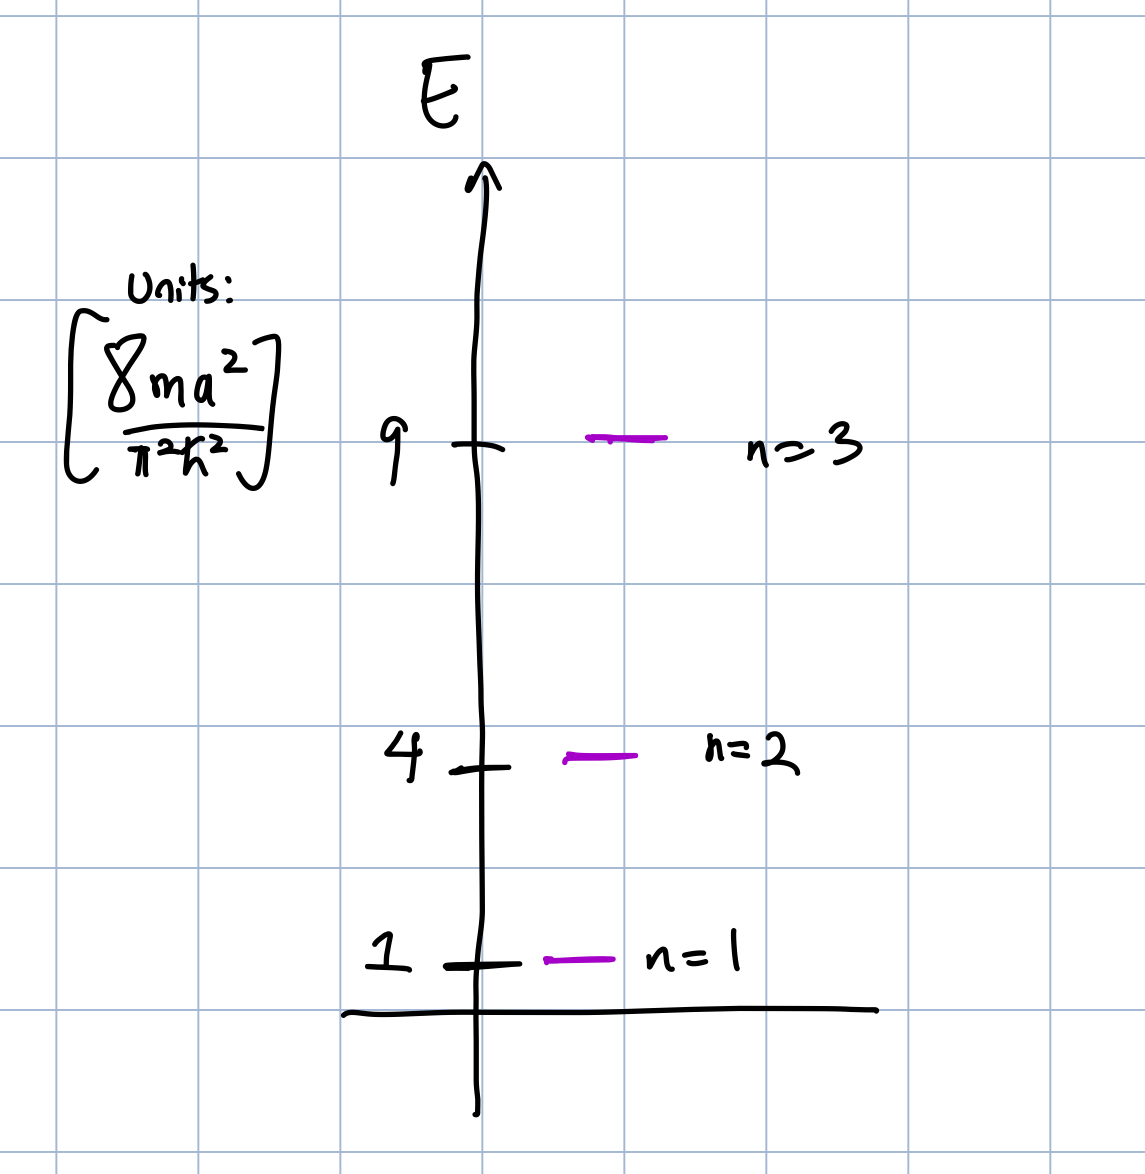 E
Units:
[8ma²/π²ħ²]
9 n=3
4 n=2
1 n=1